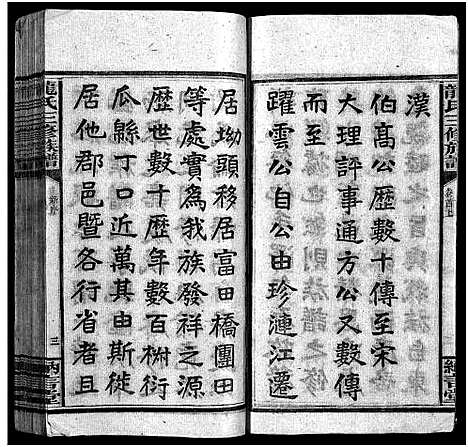 龍氏三修族譜
漢
伯高公歷數十傳至宋
大理評事通方公又數傳
而至
躍雲公自公由珍漣江遷
居坳頭移居富田橋團田
等處實為我族發祥之源
歷世數十歷年數百椒衍
瓜緜丁口近萬其由斯徙
居他郡邑暨各行省者且
龍氏三修族譜
三
納言堂